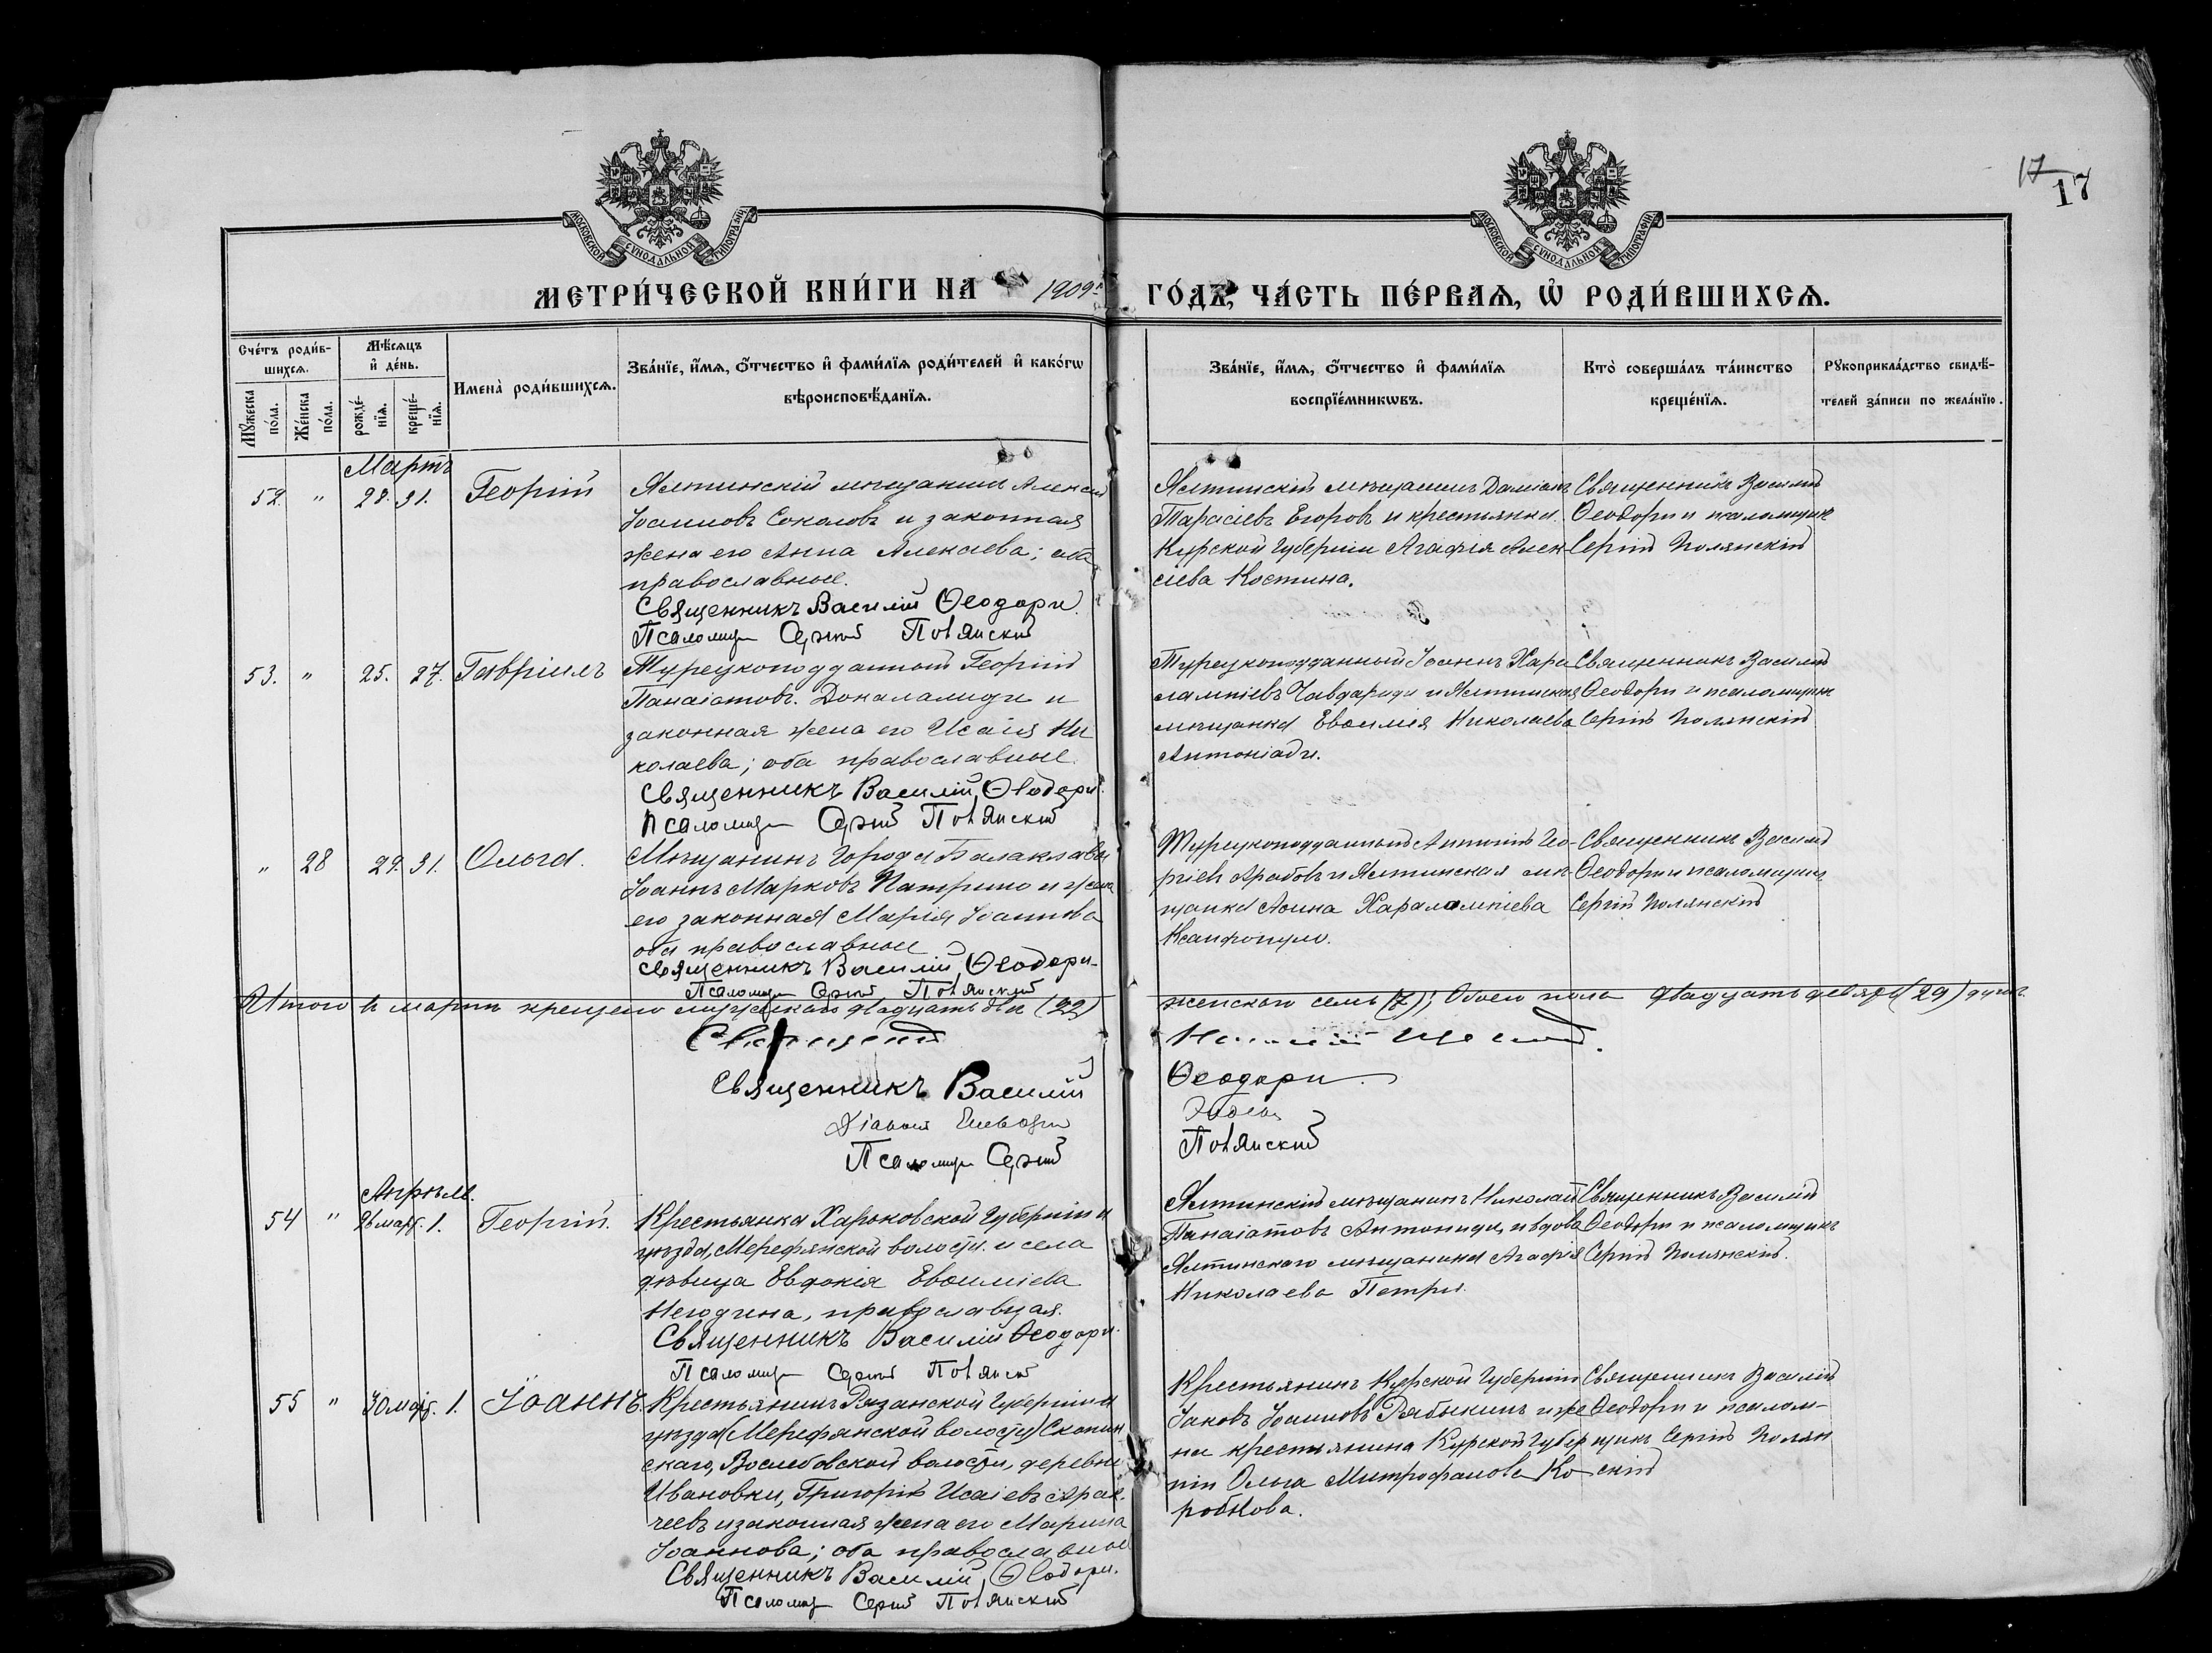 17
17
МОСКОВСКОЙ СѴНОДАЛЬНОЙ ТИПОГРАФІИ
МОСКОВСКОЙ СѴНОДАЛЬНОЙ ТИПОГРАФІИ
МЕТРИ́ЧЕСКОЙ КНИ́ГИ НА 1909 ГО́ДЪ, ЧА́СТЬ ПЕ́РВАѦ, Ѡ РОДИ́ВШИХСѦ.
Сче́тъ роди́в-
шихсѧ.
Мꙋ́жеска по́ла.
Же́нска по́ла.
Мѣ́сѧцъ
и҆ де́нь.
рожде́-
нїѧ.
креще́-
нїѧ.
Имена̀ роди́вшихсѧ.
Зва́нїе, и҆́мѧ, ѻ҆́тчество и҆ фами́лїѧ роди́телей и҆ како́гѡ
вѣроисповѣ́данїѧ.
Зва́нїе, и҆́мѧ, ѻ҆́тчество и҆ фами́лїѧ
воспрїе́мникѡвъ.
Кто̀ соверша́лъ та́инство
креще́нїѧ.
Рꙋкоприкла́дство свидѣ́-
телей за́писи по жела́нїю.
Мартъ
52. " 28. 31. Георгій
Ялтинскій мѣщанинъ Алексій
Іоанновъ Соколовъ и законная
жена его Анна Алексіева; оба
православные.
Священникъ Василій Ѳеодори.
Псаломщ Сергій Полянскій
Ялтинскій мѣщанинъ Даміанъ
Тарасіевъ Егоровъ и крестьянка
Курской губерніи Агафія Алек-
сіева Костина.
Священникъ Василій
Ѳеодори и псаломщикъ
Сергій Полянскій
53. " 25. 27. Гавріилъ
Турецкоподданный Георгій
Панаіотовъ Докаламиди и
законная жена его Исаія Ни
колаева; оба православные.
Священникъ Василій Ѳеодори.
Псаломщ Сергій Полянскій
Турецкоподданный Іоаннъ Хара
лампіевъ Чавдариди и Ялтинская
мѣщанка Евѳимія Николаева
Антоніади.
Священникъ Василій
Ѳеодори и псаломщикъ
Сергій Полянскій
" 28 29. 31. Ольга.
Мѣщанинъ города Балаклавы
Іоаннъ Марковъ Патрино и жена
его законная Марія Іоаннова
оба православные
Священникъ Василій Ѳеодори
Псаломщ Сергій Полянскій
Турецкоподданный Антоній Гео-
ргіевъ Арабовъ и Ялтинская мѣ-
щанка Анна Харалампіева
Ксанфопуло.
Священникъ Василій
Ѳеодори и псаломщикъ
Сергій Полянскій
Итого въ мартѣ крещено мужескаго двадцать два (22)
женскаго семь (7); Обоего пола двадцать девять (29) душъ
Священникъ Василій Ѳеодори
Діаконъ
Псаломщ Сергій Полянскій
Апрѣль.
54 " 26 март. 1. Георгій.
Крестьянка Харьковской губерніи и
уѣзда, Мерефянской волости и села
дѣвица Евдокія Евѳиміева
Негодина, православная.
Священникъ Василій Ѳеодори.
Псаломщ Сергій Полянскій
Ялтинскій мѣщанинъ Николай
Панаіотовъ Антониди, и вдова
Ялтинскаго мѣщанина Агафія
Николаева Петри.
Священникъ Василій
Ѳеодори и псаломщикъ
Сергій Полянскій.
55 " 30 март. 1. Іоаннъ.
Крестьянинъ Рязанской губерніи и
уѣзда (Мерефянской волости) Скопин
скаго, Вослебовской волости, деревни
Ивановки, Григорій Исаіевъ Арак-
чеевъ и законная жена его Марина
Іоаннова; оба православные
Священникъ Василій Ѳеодори.
Псаломщ Сергій Полянскій
Крестьянинъ Курской губерніи
Іаковъ Іоанновъ Рябыкинъ и же
на крестьянина Курской губер
ніи Ольга Митрофанова Ко
робкова.
Священникъ Василій
Ѳеодори и псалом-
щикъ Сергій Полян
скій